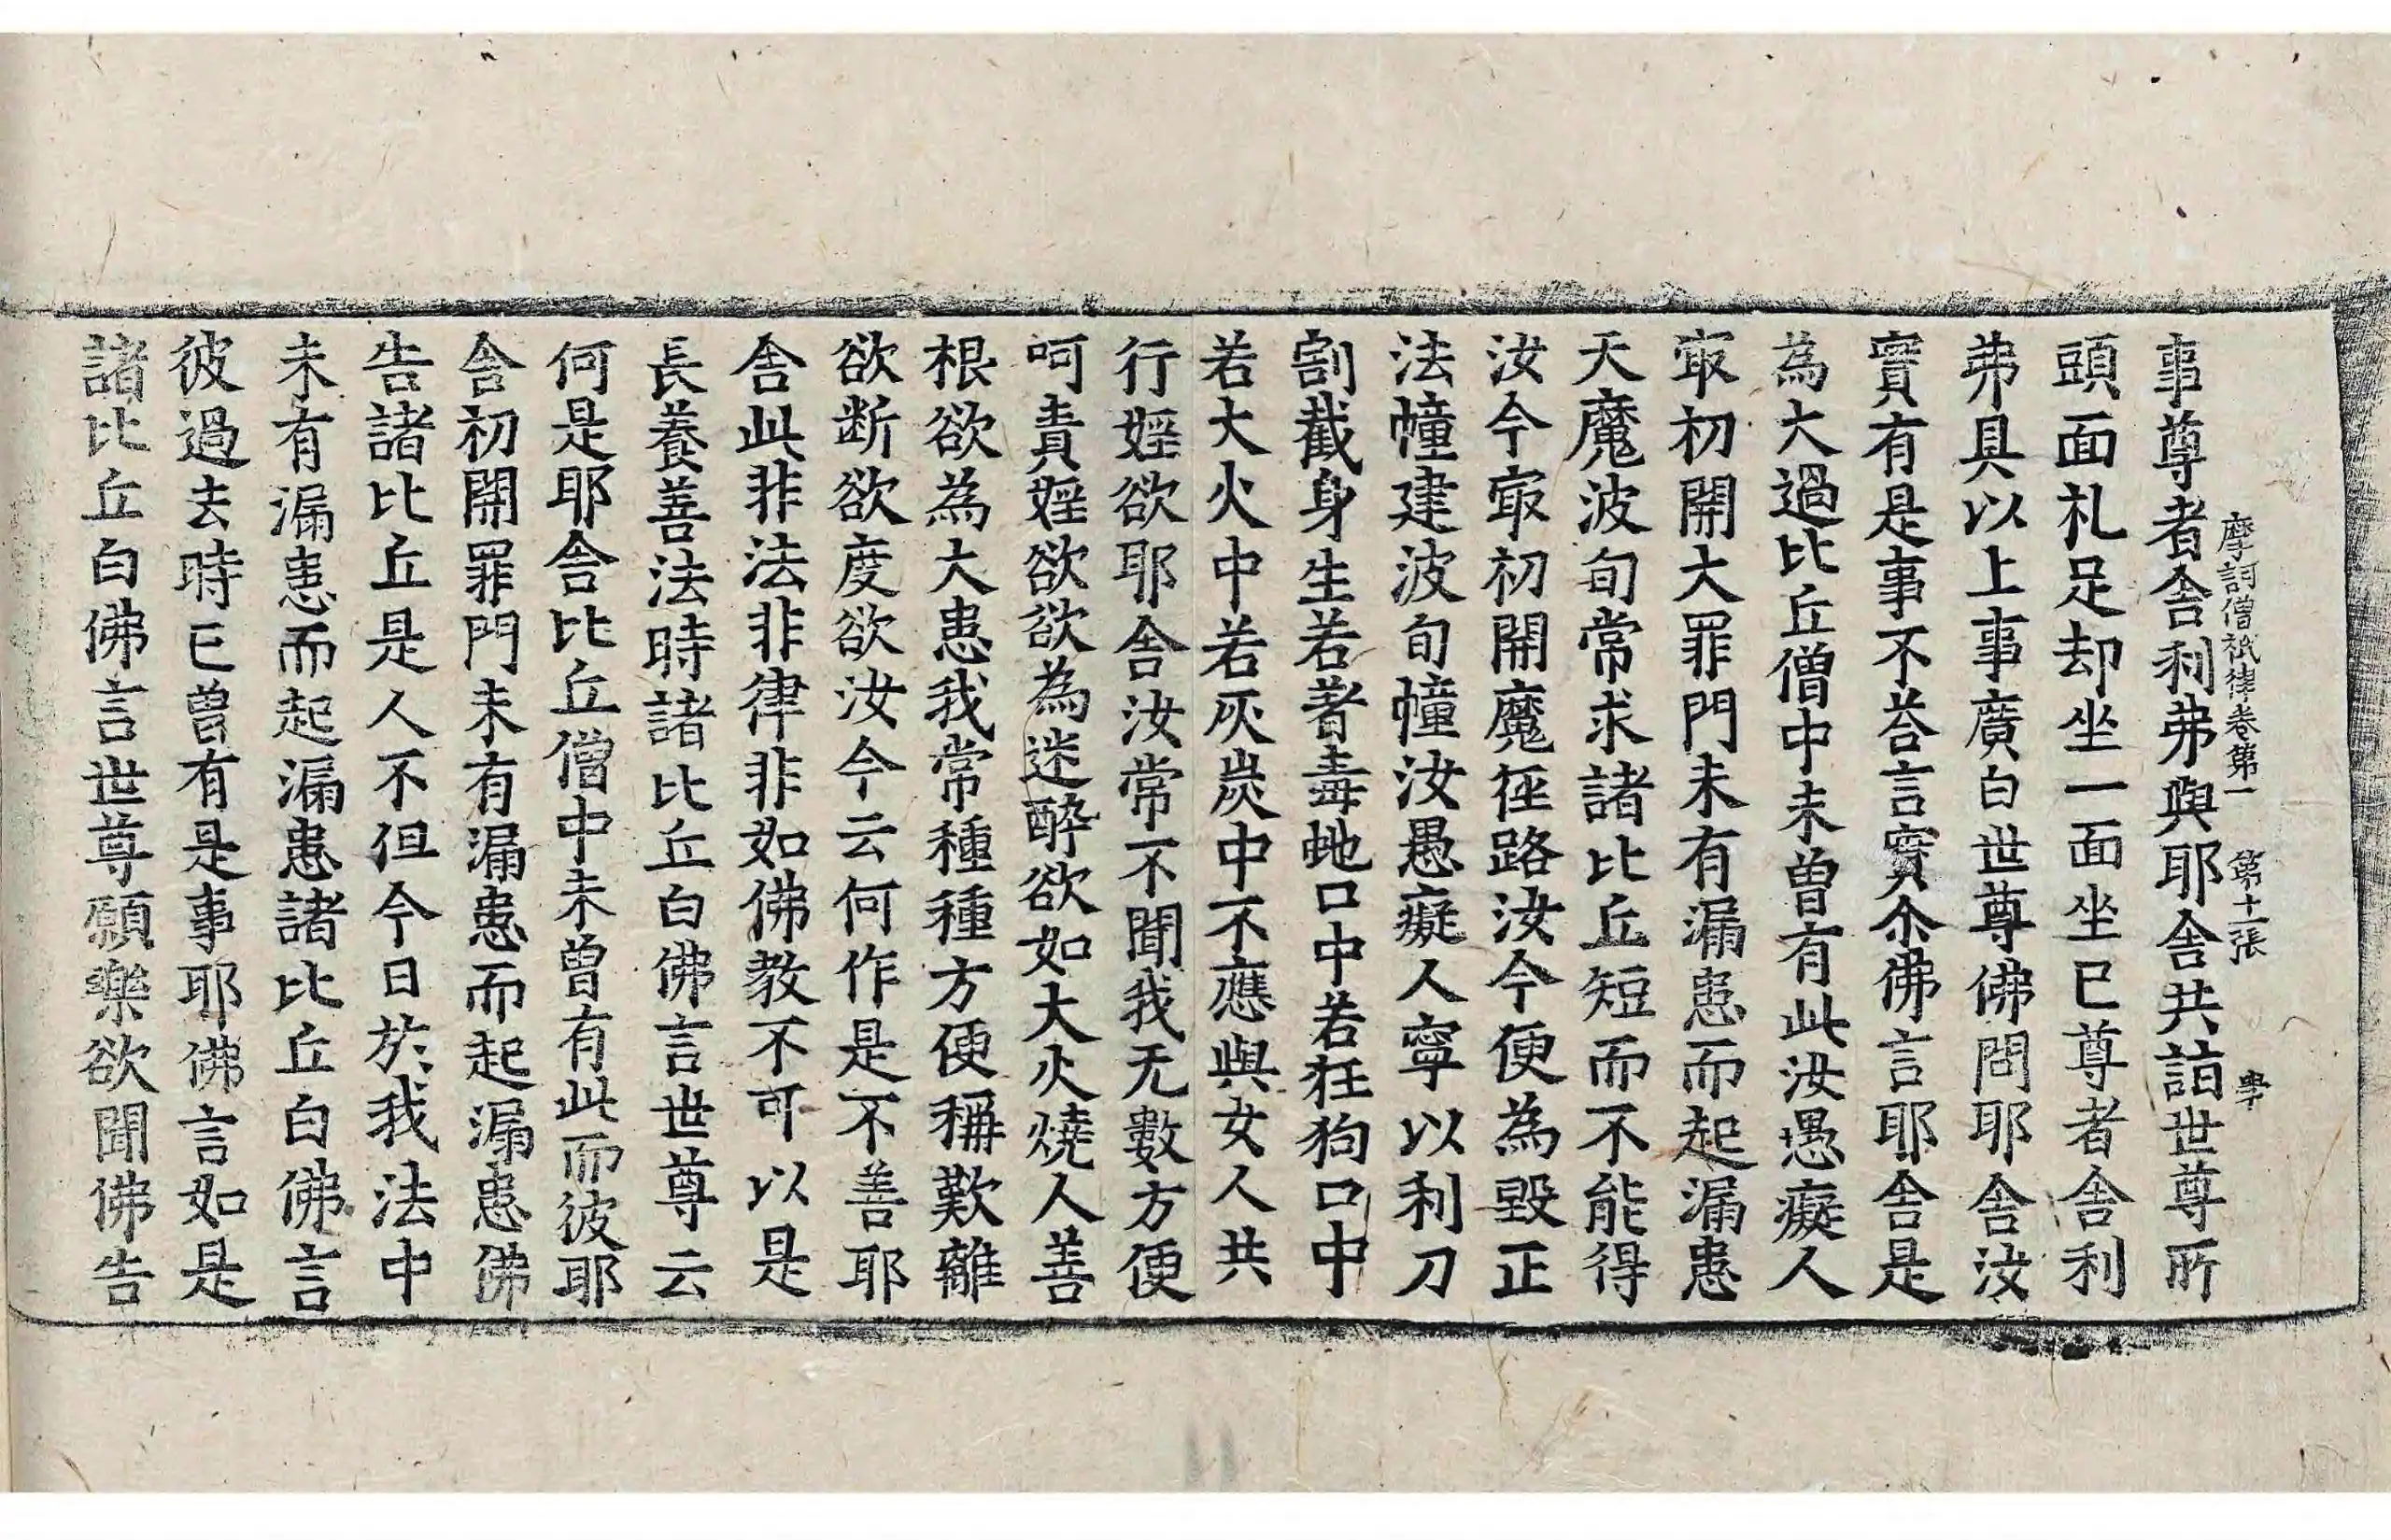 摩訶僧祇律卷第一 第十一張
事尊者舍利弗與耶舍共詣世尊所
頭面礼足却坐一面坐已尊者舍利
弗具以上事廣白世尊佛問耶舍汝
實有是事不荅言實尒佛言耶舍是
為大過比丘僧中未曾有此汝愚癡人
㝡初開大罪門未有漏患而起漏患
天魔波旬常求諸比丘短而不能得
汝今㝡初開魔徑路汝今便為毀正
法幢建波旬幢汝愚癡人寧以利刀
割截身生若著毒虵口中若狂狗口中
若大火中若灰炭中不應與女人共
行婬欲耶舍汝常不聞我无數方便
呵責婬欲欲為迷醉欲如大火燒人善
根欲為大患我常種種方便稱歎離
欲断欲度欲汝今云何作是不善耶
舍此非法非律非如佛教不可以是
長養善法時諸比丘白佛言世尊云
何是耶舍比丘僧中未曾有此而彼耶
舍初開罪門未有漏患而起漏患佛
告諸比丘是人不但今日於我法中
未有漏患而起漏患諸比丘白佛言
彼過去時已曾有是事耶佛言如是
諸比丘白佛言世尊願樂欲聞佛告